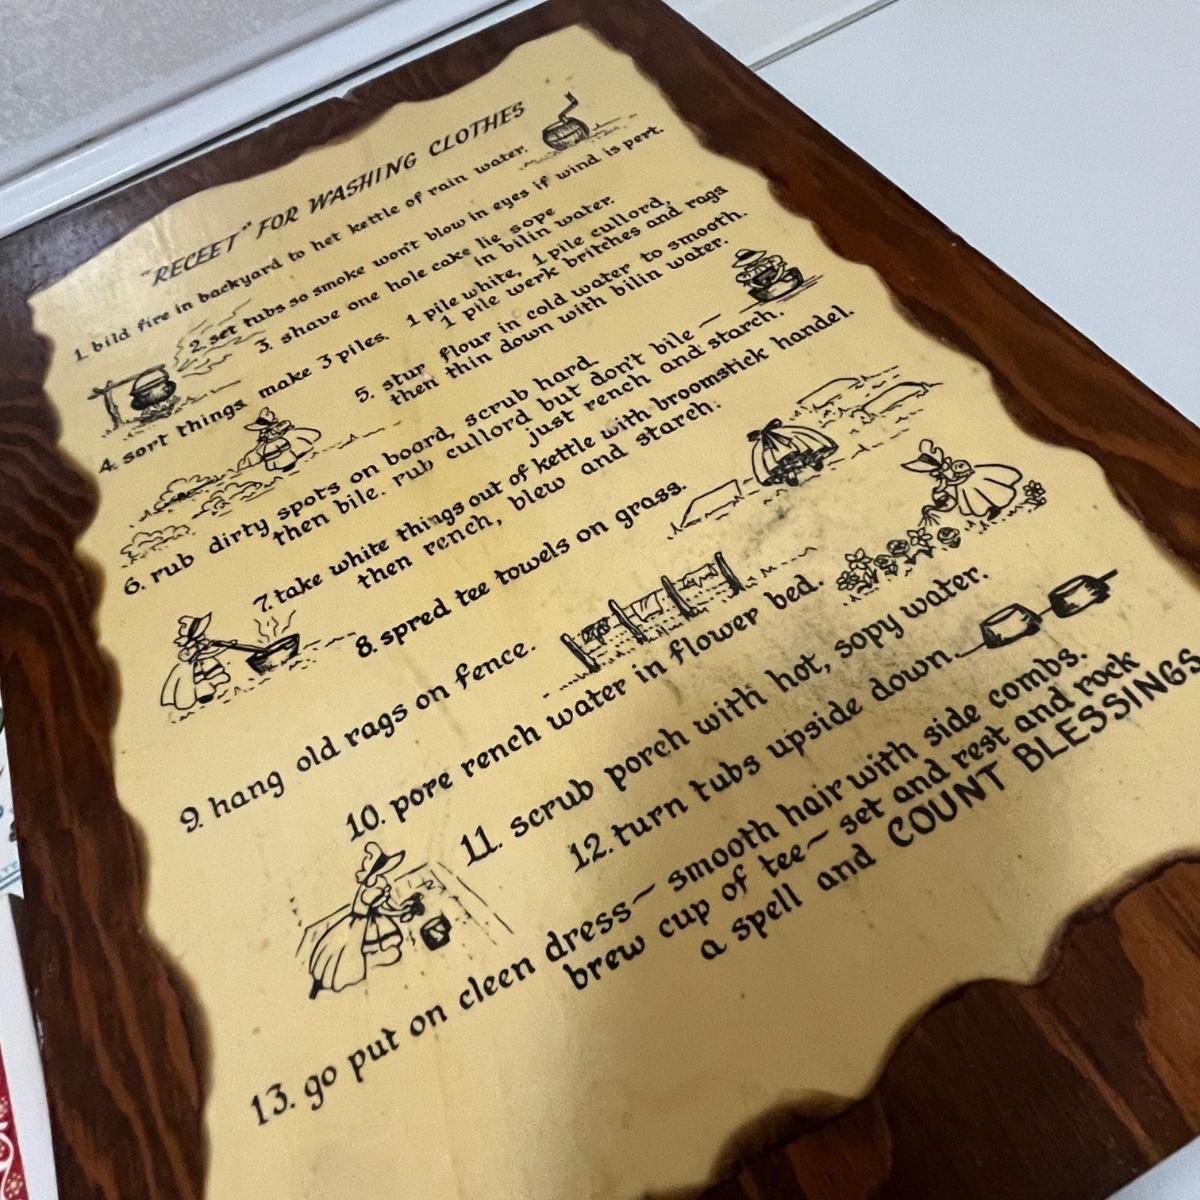 "RECEET" FOR WASHING CLOTHES
1. bild fire in backyard to het kettle of rain water.
2. set tubs so smoke won't blow in eyes if wind is pert.
3. shave one hole cake lie sope
in bilin water.
4. sort things, make 3 piles, 1 pile white, 1 pile cullord,
1 pile werk britches and rags
5. stur flour in cold water to smooth.
then thin down with bilin water.
6. rub dirty spots on board, scrub hard,
then bile. rub cullord but don't bile —
just rench and starch.
7. take white things out of kettle with broomstick handel.
then rench, blew and starch.
8. spred tee towels on grass.
9. hang old rags on fence.
10. pore rench water in flower bed.
11. scrub porch with hot, sopy water.
12. turn tubs upside down.
13. go put on cleen dress — smooth hair with side combs.
brew cup of tee — set and rest and rock
a spell and COUNT BLESSINGS